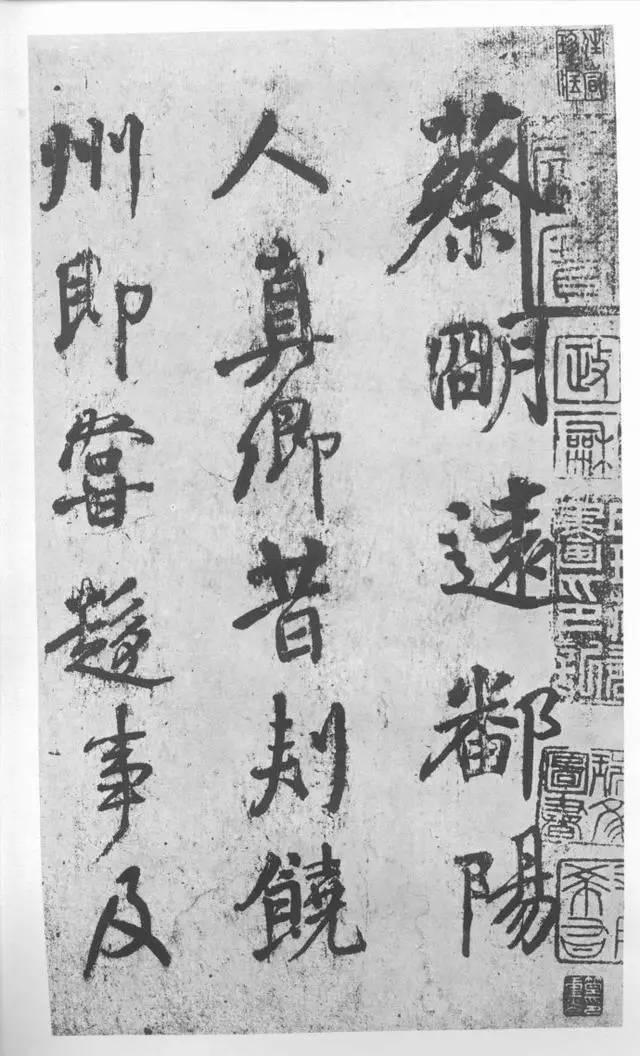 蔡朙遠鄱陽
人真卿昔刾饒
州即甞趍事及